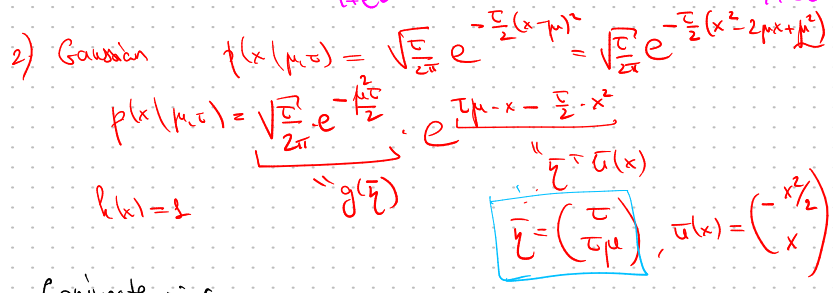 2) Gaussian p(x|μ,τ) = √(τ/2π) e^{-τ/2 (x-μ)²} = √(τ/2π) e^{-τ/2 (x²-2μx+μ²)}
p(x|μ,τ) = √(τ/2π) · e^{-μ²τ/2} · e^{τμ·x - τ/2 · x²}
" g(η̄)
" η̄ᵀ ū(x)
h(x)=1
η̄ = (τ τμ), ū(x) = (-x²/2 x)